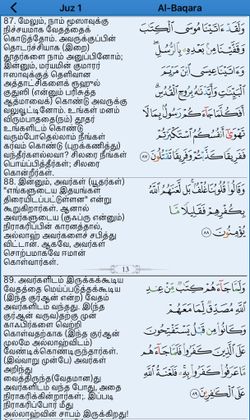 Juz 1
Al-Baqara
87. மேலும், நாம் மூஸாவுக்கு
நிச்சயமாக வேதத்தைக்
கொடுத்தோம். அவருக்குப்பின்
தொடர்ச்சியாக (இறை)
தூதர்களை நாம் அனுப்பினோம்;
இன்னும், மர்யமின் குமாரர்
ஈஸாவுக்குத் தெளிவான
அத்தாட்சிகளைக் ரூஹுல்
குதுஸி (என்னும் பரிசுத்த
ஆத்மாவைக்) கொண்டு அவருக்கு
வலுவூட்டினோம். உங்கள் மனம்
விரும்பாததை(நம்) தூதர்
உங்களிடம் கொண்டு
வரும்போதெல்லாம் நீங்கள்
கர்வம் கொண்டு (புறக்கணித்து)
வந்தீர்களல்லவா? சிலரை நீங்கள்
பொய்ப்பித்தீர்கள்; சிலரை
கொன்றீர்கள்.
وَلَقَدْ ءَاتَيْنَا مُوسَى ٱلْكِتَٰبَ
وَقَفَّيْنَا مِنۢ بَعْدِهِۦ بِٱلرُّسُلِ
وَءَاتَيْنَا عِيسَى ٱبْنَ مَرْيَمَ
ٱلْبَيِّنَٰتِ وَأَيَّدْنَٰهُ بِرُوحِ ٱلْقُدُسِ
أَفَكُلَّمَا جَآءَكُمْ رَسُولٌۢ بِمَا لَا
تَهْوَىٰٓ أَنفُسُكُمُ ٱسْتَكْبَرْتُمْ
فَفَرِيقًا كَذَّبْتُمْ وَفَرِيقًا تَقْتُلُونَ ٨٧
88. இன்னும், அவர்கள் (யூதர்கள்)
"எங்களுடைய இதயங்கள்
திரையிடப்பட்டுள்ளன" என்று
கூறுகிறார்கள். ஆனால்
அவர்களுடைய (குஃப்ரு என்னும்)
நிராகரிப்பின் காரணத்தால்,
அல்லாஹ் அவர்களைச் சபித்து
விட்டான். ஆகவே, அவர்கள்
சொற்பமாகவே ஈமான்
கொள்வார்கள்.
وَقَالُوا۟ قُلُوبُنَا غُلْفٌۢ بَل لَّعَنَهُمُ ٱللَّهُ
بِكُفْرِهِمْ فَقَلِيلًا مَّا
يُؤْمِنُونَ ٨٨
13
89. அவர்களிடம் இருக்கக்கூடிய
வேதத்தை மெய்ப்படுத்தக்கூடிய
(இந்த குர்ஆன் என்ற) வேதம்
அவர்களிடம் வந்தது. இந்த
(குர்ஆன் வருவ)தற்கு முன்
காஃபிர்களை வெற்றி
கொள்வதற்காக (இந்த குர்ஆன்
மூலமே அல்லாஹ்விடம்)
வேண்டிக்கொண்டிருந்தார்கள்.
(இவ்வாறு முன்பே) அவர்கள்
அறிந்து
வைத்திருந்த(வேதமான)து
அவர்களிடம் வந்த போது, அதை
நிராகரிக்கின்றார்கள்; இப்படி
நிராகரிப்போர் மீது
அல்லாஹ்வின் சாபம் இருக்கிறது!
وَلَمَّا جَآءَهُمْ كِتَٰبٌ مِّنْ عِندِ
ٱللَّهِ مُصَدِّقٌ لِّمَا مَعَهُمْ
وَكَانُوا۟ مِن قَبْلُ يَسْتَفْتِحُونَ
عَلَى ٱلَّذِينَ كَفَرُوا۟ فَلَمَّا جَآءَهُم
مَّا عَرَفُوا۟ كَفَرُوا۟ بِهِۦ فَلَعْنَةُ ٱللَّهِ
عَلَى ٱلْكَٰفِرِينَ ٨٩